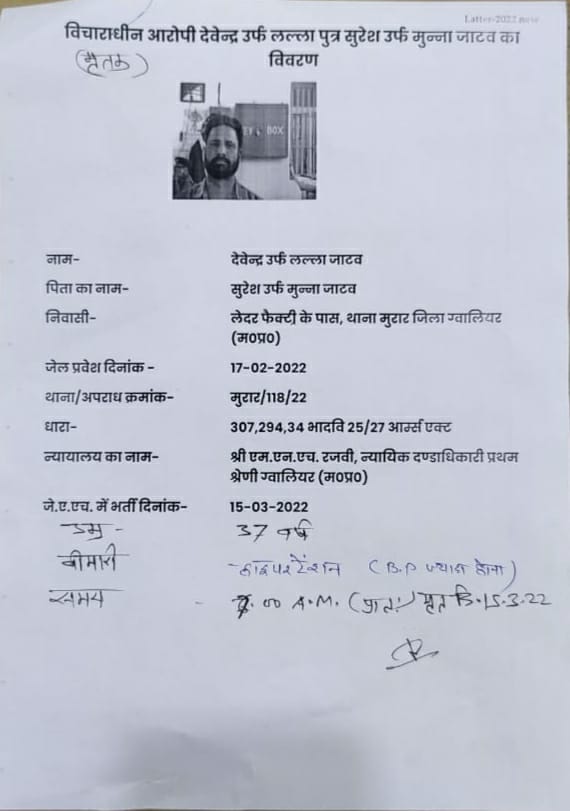 Latter-2022 new
विचाराधीन आरोपी देवेन्द्र उर्फ लल्ला पुत्र सुरेश उर्फ मुन्ना जाटव का
(मृतक) विवरण
BOX
नाम- देवेन्द्र उर्फ लल्ला जाटव
पिता का नाम- सुरेश उर्फ मुन्ना जाटव
निवासी- लेदर फैक्ट्री के पास, थाना मुरार जिला ग्वालियर
(म0प्र0)
जेल प्रवेश दिनांक - 17-02-2022
थाना/अपराध क्रमांक- मुरार/118/22
धारा- 307,294,34 भादवि 25/27 आर्म्स एक्ट
न्यायालय का नाम- श्री एम.एन.एच. रजवी, न्यायिक दण्डाधिकारी प्रथम
श्रेणी ग्वालियर (म0प्र0)
जे.ए.एच. में भर्ती दिनांक- 15-03-2022
उम्र - 37 वर्ष
बीमारी - हाइपरटेंशन (B.P ज्यादा होना)
समय - 7.00 A.M. (प्रातः) मृत दि. 15.3.22